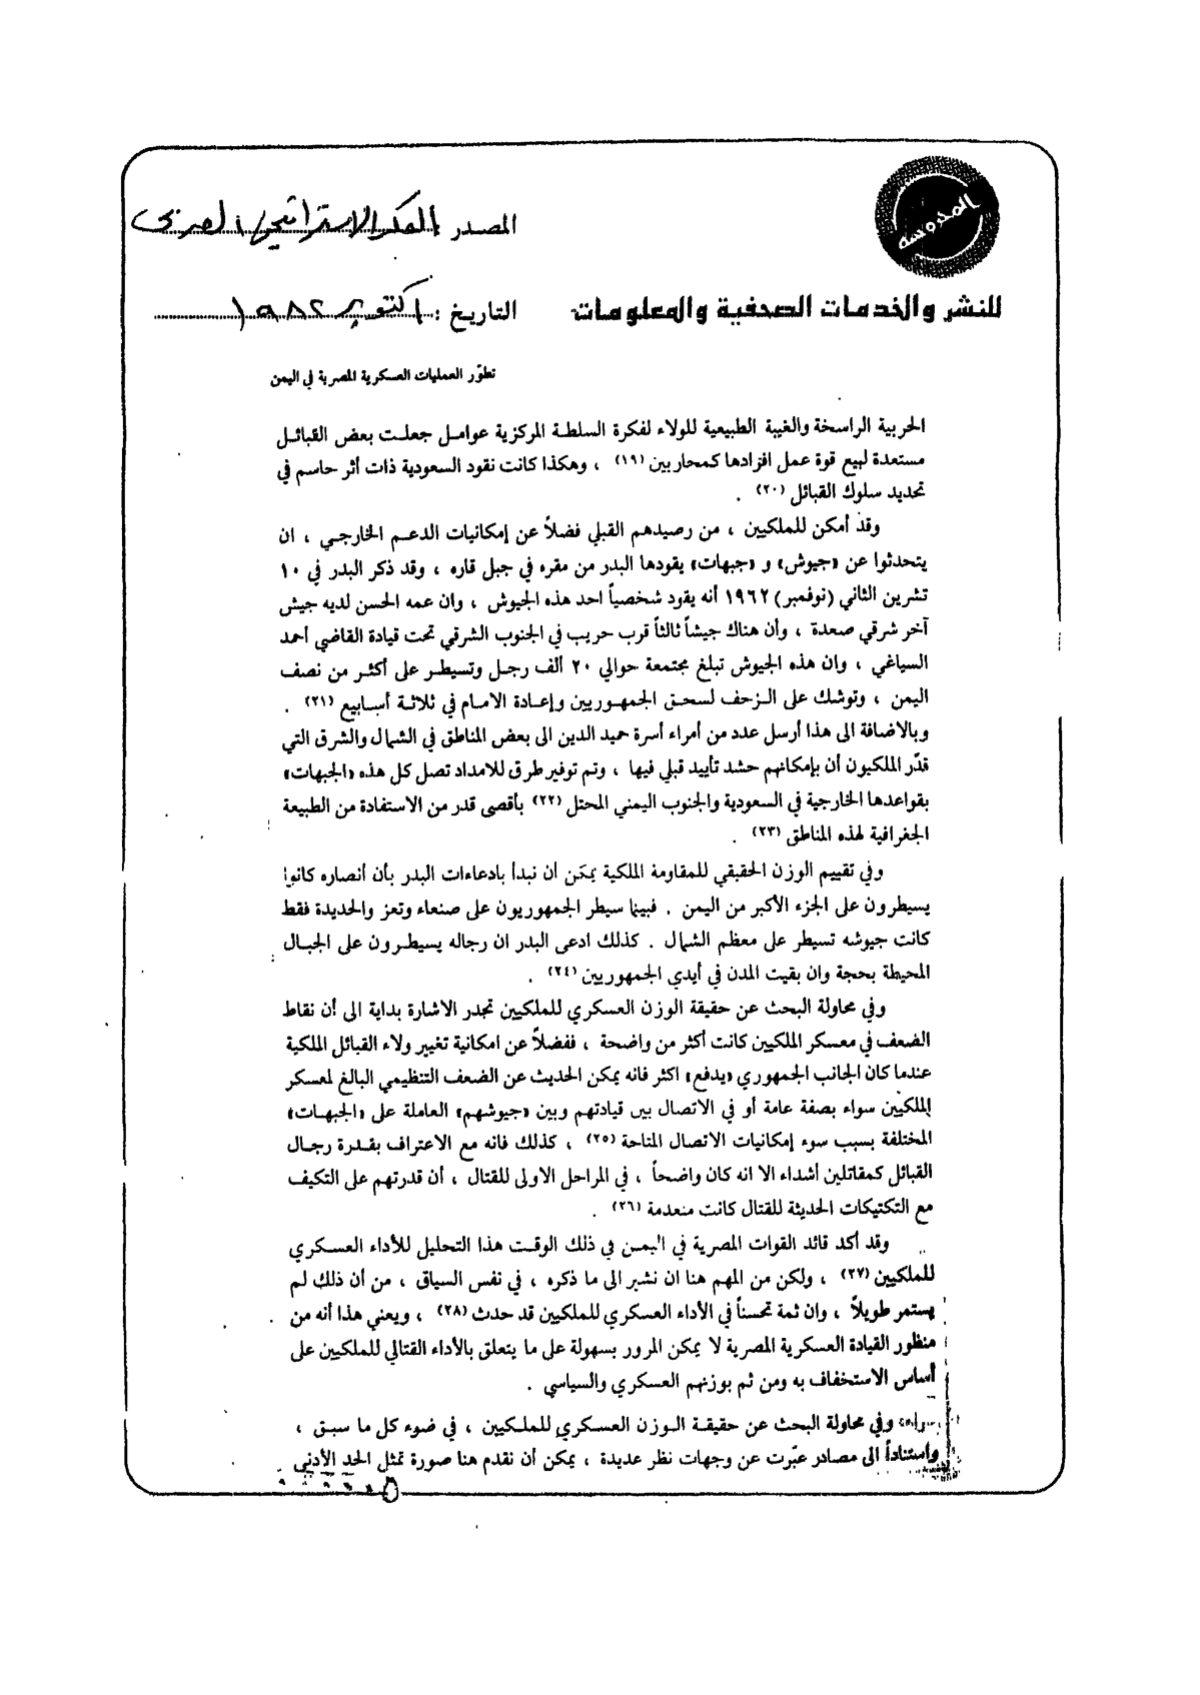 المحروسة
المصدر : الفكر الاستراتيجي العربي
للنشر والخدمات الصحفية والمعلومات
التاريخ : أكتوبر ١٩٨٢
تطوّر العمليات العسكرية المصرية في اليمن
الحربية الراسخة والغيبة الطبيعية للولاء لفكرة السلطة المركزية عوامل جعلت بعض القبائل
مستعدة لبيع قوة عمل افرادها كمحاربين (١٩) ، وهكذا كانت نقود السعودية ذات أثر حاسم في
تحديد سلوك القبائل (٢٠) .
وقد أمكن للملكيين ، من رصيدهم القبلي فضلاً عن إمكانيات الدعم الخارجي ، ان
يتحدثوا عن «جيوش» و «جبهات» يقودها البدر من مقره في جبل قاره ، وقد ذكر البدر في ١٠
تشرين الثاني (نوفمبر) ١٩٦٢ أنه يقود شخصياً احد هذه الجيوش ، وان عمه الحسن لديه جيش
آخر شرقي صعدة ، وأن هناك جيشاً ثالثاً قرب حريب في الجنوب الشرقي تحت قيادة القاضي أحمد
السياغي ، وان هذه الجيوش تبلغ مجتمعة حوالي ٢٠ ألف رجل وتسيطر على أكثر من نصف
اليمن ، وتوشك على الزحف لسحق الجمهوريين وإعادة الامام في ثلاثة أسابيع (٢١) .
وبالاضافة الى هذا أرسل عدد من أمراء أسرة حميد الدين الى بعض المناطق في الشمال والشرق التي
قدّر الملكيون أن بإمكانهم حشد تأييد قبلي فيها ، وتم توفير طرق للامداد تصل كل هذه «الجبهات»
بقواعدها الخارجية في السعودية والجنوب اليمني المحتل (٢٢) بأقصى قدر من الاستفادة من الطبيعة
الجغرافية لهذه المناطق (٢٣) .
وفي تقييم الوزن الحقيقي للمقاومة الملكية يمكن ان نبدأ بادعاءات البدر بأن أنصاره كانوا
يسيطرون على الجزء الأكبر من اليمن . فبينما سيطر الجمهوريون على صنعاء وتعز والحديدة فقط
كانت جيوشه تسيطر على معظم الشمال . كذلك ادعى البدر ان رجاله يسيطرون على الجبال
المحيطة بحجة وان بقيت المدن في أيدي الجمهوريين (٢٤) .
وفي محاولة البحث عن حقيقة الوزن العسكري للملكيين تجدر الاشارة بداية الى أن نقاط
الضعف في معسكر الملكيين كانت أكثر من واضحة ، ففضلاً عن امكانية تغيير ولاء القبائل الملكية
عندما كان الجانب الجمهوري «يدفع» اكثر فانه يمكن الحديث عن الضعف التنظيمي البالغ لمعسكر
الملكيين سواء بصفة عامة أو في الاتصال بين قيادتهم وبين «جيوشهم» العاملة على «الجبهات»
المختلفة بسبب سوء إمكانيات الاتصال المتاحة (٢٥) ، كذلك فانه مع الاعتراف بقدرة رجال
القبائل كمقاتلين أشداء الا انه كان واضحاً ، في المراحل الاولى للقتال ، أن قدرتهم على التكيف
مع التكتيكات الحديثة للقتال كانت منعدمة (٢٦) .
وقد أكد قائد القوات المصرية في اليمن في ذلك الوقت هذا التحليل للأداء العسكري
للملكيين (٢٧) ، ولكن من المهم هنا ان نشير الى ما ذكره ، في نفس السياق ، من أن ذلك لم
يستمر طويلاً ، وان ثمة تحسناً في الأداء العسكري للملكيين قد حدث (٢٨) ، ويعني هذا أنه من
منظور القيادة العسكرية المصرية لا يمكن المرور بسهولة على ما يتعلق بالأداء القتالي للملكيين على
أساس الاستخفاف به ومن ثم بوزنهم العسكري والسياسي .
وفي محاولة البحث عن حقيقة الوزن العسكري للملكيين ، في ضوء كل ما سبق ،
وأستناداً الى مصادر عبّرت عن وجهات نظر عديدة ، يمكن أن نقدم هنا صورة تمثل الحد الأدنى